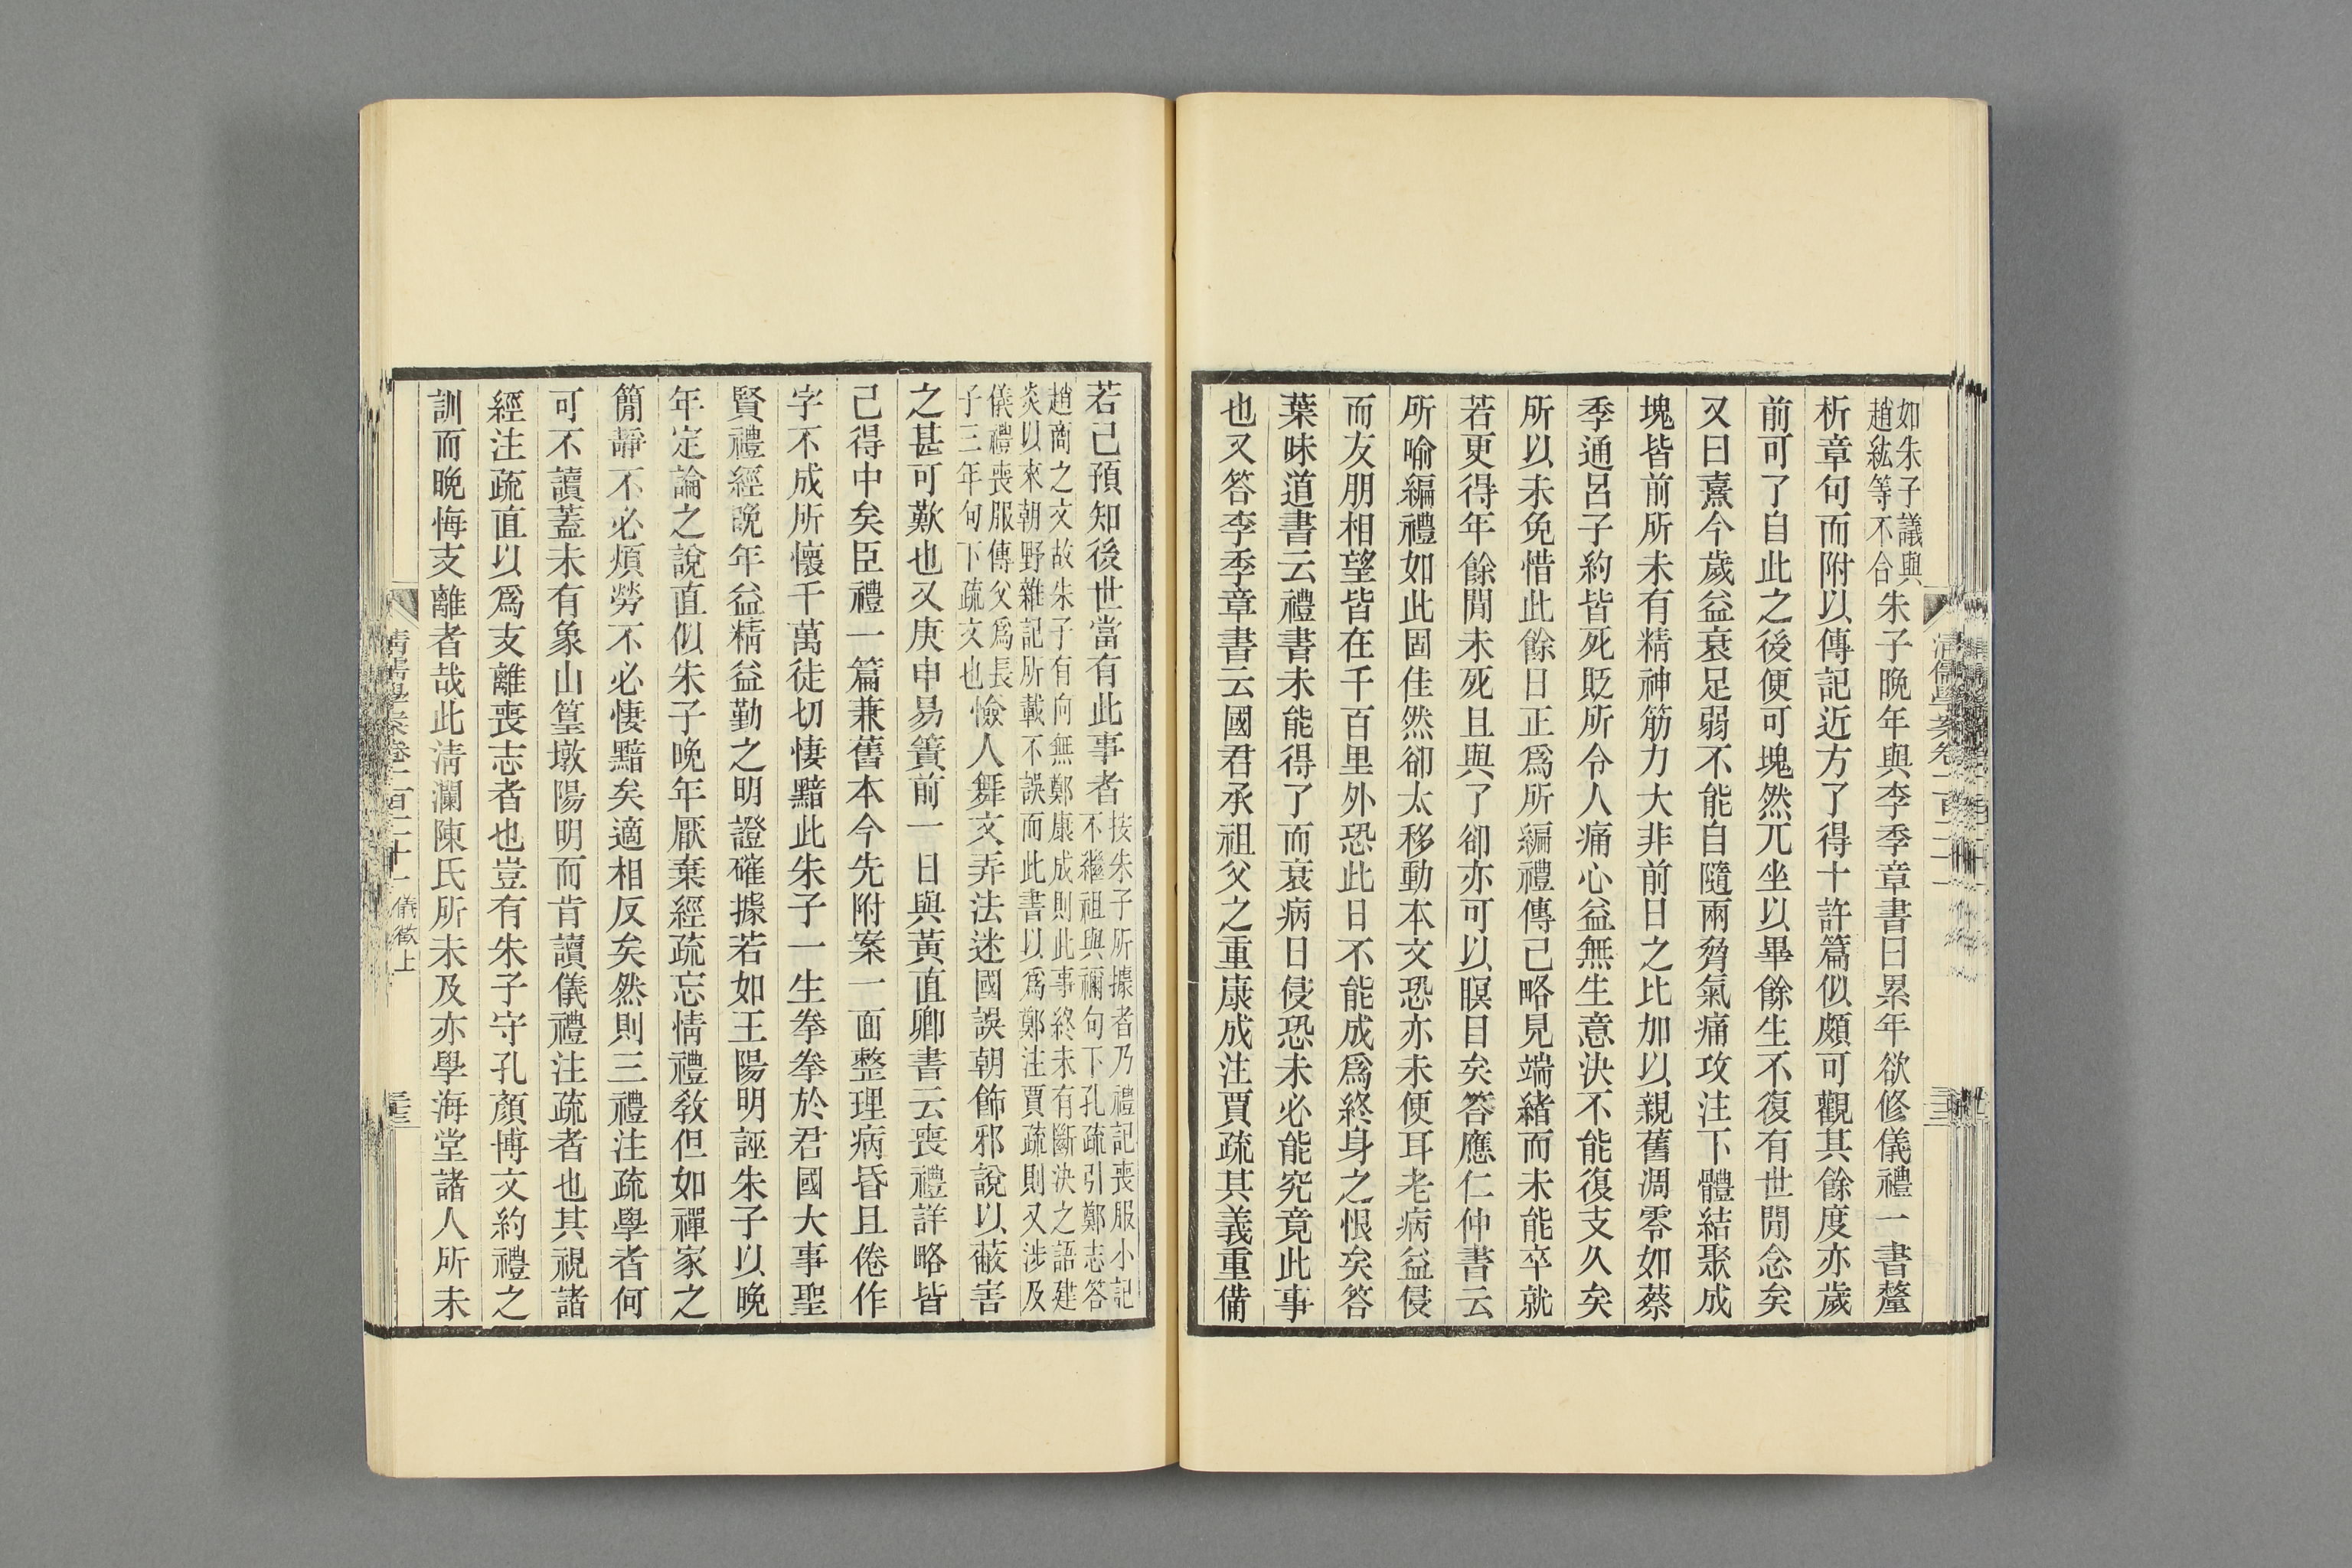 如朱子議與
趙紘等不合
朱子晚年與李季章書曰累年欲修儀禮一書釐
析章句而附以傳記近方了得十許篇似頗可觀其餘度亦歲
前可了自此之後便可塊然兀坐以畢餘生不復有世閒念矣
又曰熹今歲益衰足弱不能自隨兩脅氣痛攻注下體結聚成
塊皆前所未有精神筋力大非前日之比加以親舊凋零如蔡
季通呂子約皆死貶所令人痛心益無生意決不能復支久矣
所以未免惜此餘日正爲所編禮傳已略見端緒而未能卒就
若更得年餘閒未死且與了卻亦可以瞑目矣答應仁仲書云
所喻編禮如此固佳然卻太移動本文恐亦未便耳老病益侵
而友朋相望皆在千百里外恐此日不能成爲終身之恨矣答
葉味道書云禮書未能得了而衰病日侵恐未必能究竟此事
也又答李季章書云國君承祖父之重康成注賈疏其義重備
若已預知後世當有此事者
按朱子所據者乃禮記喪服小記
不繼祖與禰句下孔疏引鄭志答
趙商之文故朱子有向無鄭康成則此事終未有斷決之語建
炎以來朝野雜記所載不誤而此書以爲鄭注賈疏則又涉及
儀禮喪服傳父爲長
子三年句下疏文也
憸人舞文弄法迷國誤朝飾邪說以蔽害
之甚可歎也又庚申易簀前一日與黃直卿書云喪禮詳略皆
已得中矣臣禮一篇兼舊本今先附案一面整理病昏且倦作
字不成所懷千萬徒切悽黯此朱子一生拳拳於君國大事聖
賢禮經晚年益精益勤之明證確據若如王陽明誣朱子以晚
年定論之說直似朱子晚年厭棄經疏忘情禮敎但如禪家之
簡靜不必煩勞不必悽黯矣適相反矣然則三禮注疏學者何
可不讀蓋未有象山篁墩陽明而肯讀儀禮注疏者也其視諸
經注疏直以爲支離喪志者也豈有朱子守孔顏博文約禮之
訓而晚悔支離者哉此淸瀾陳氏所未及亦學海堂諸人所未
清儒學案卷一百二十一 儀徵上